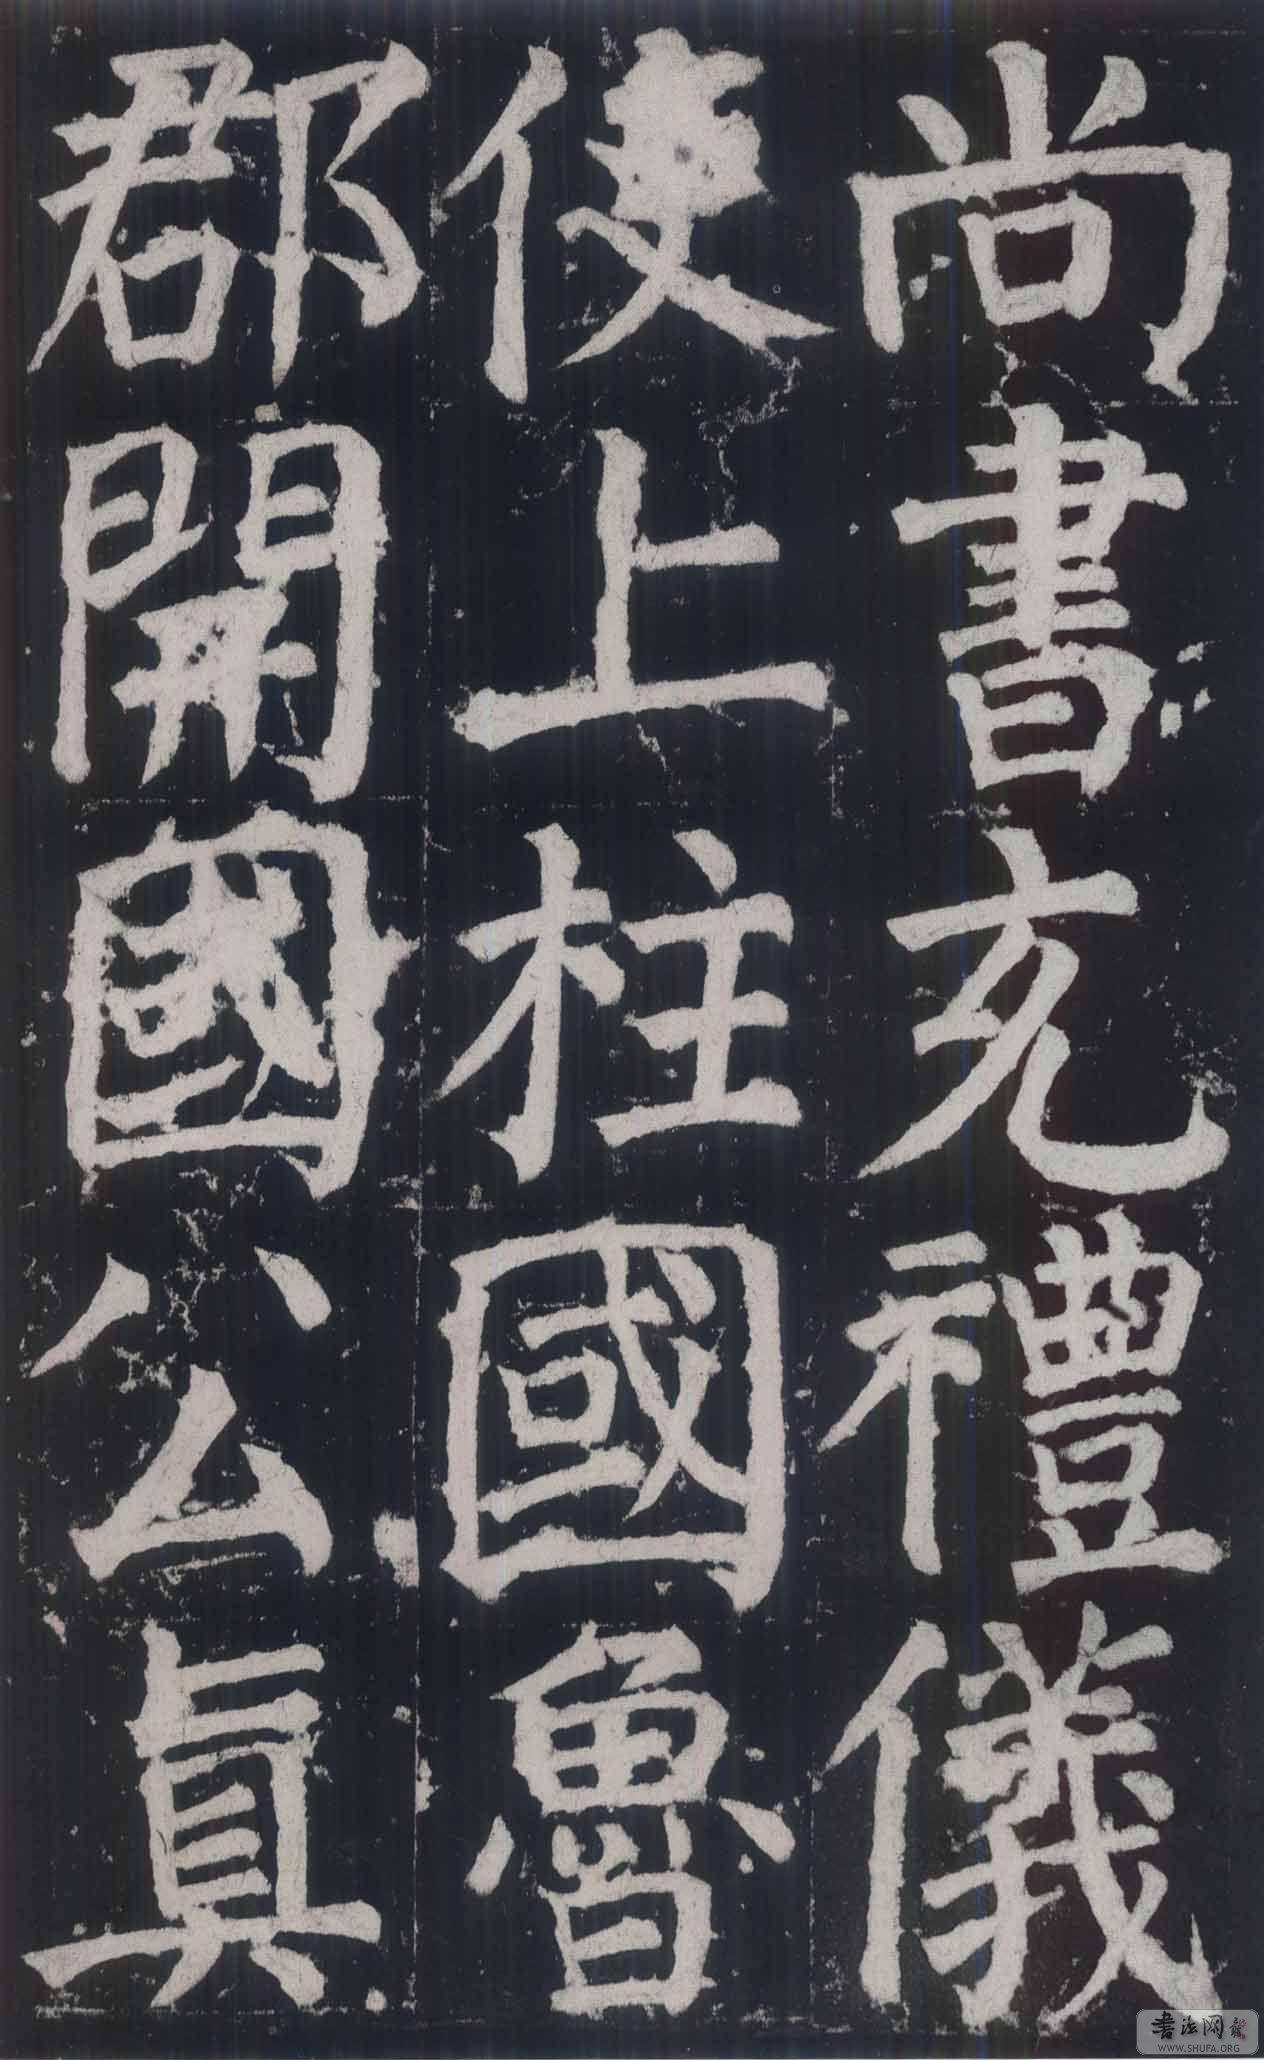 尚書充禮儀
使上柱國魯
郡開國公真
書法网
WWW.SHUFA.ORG